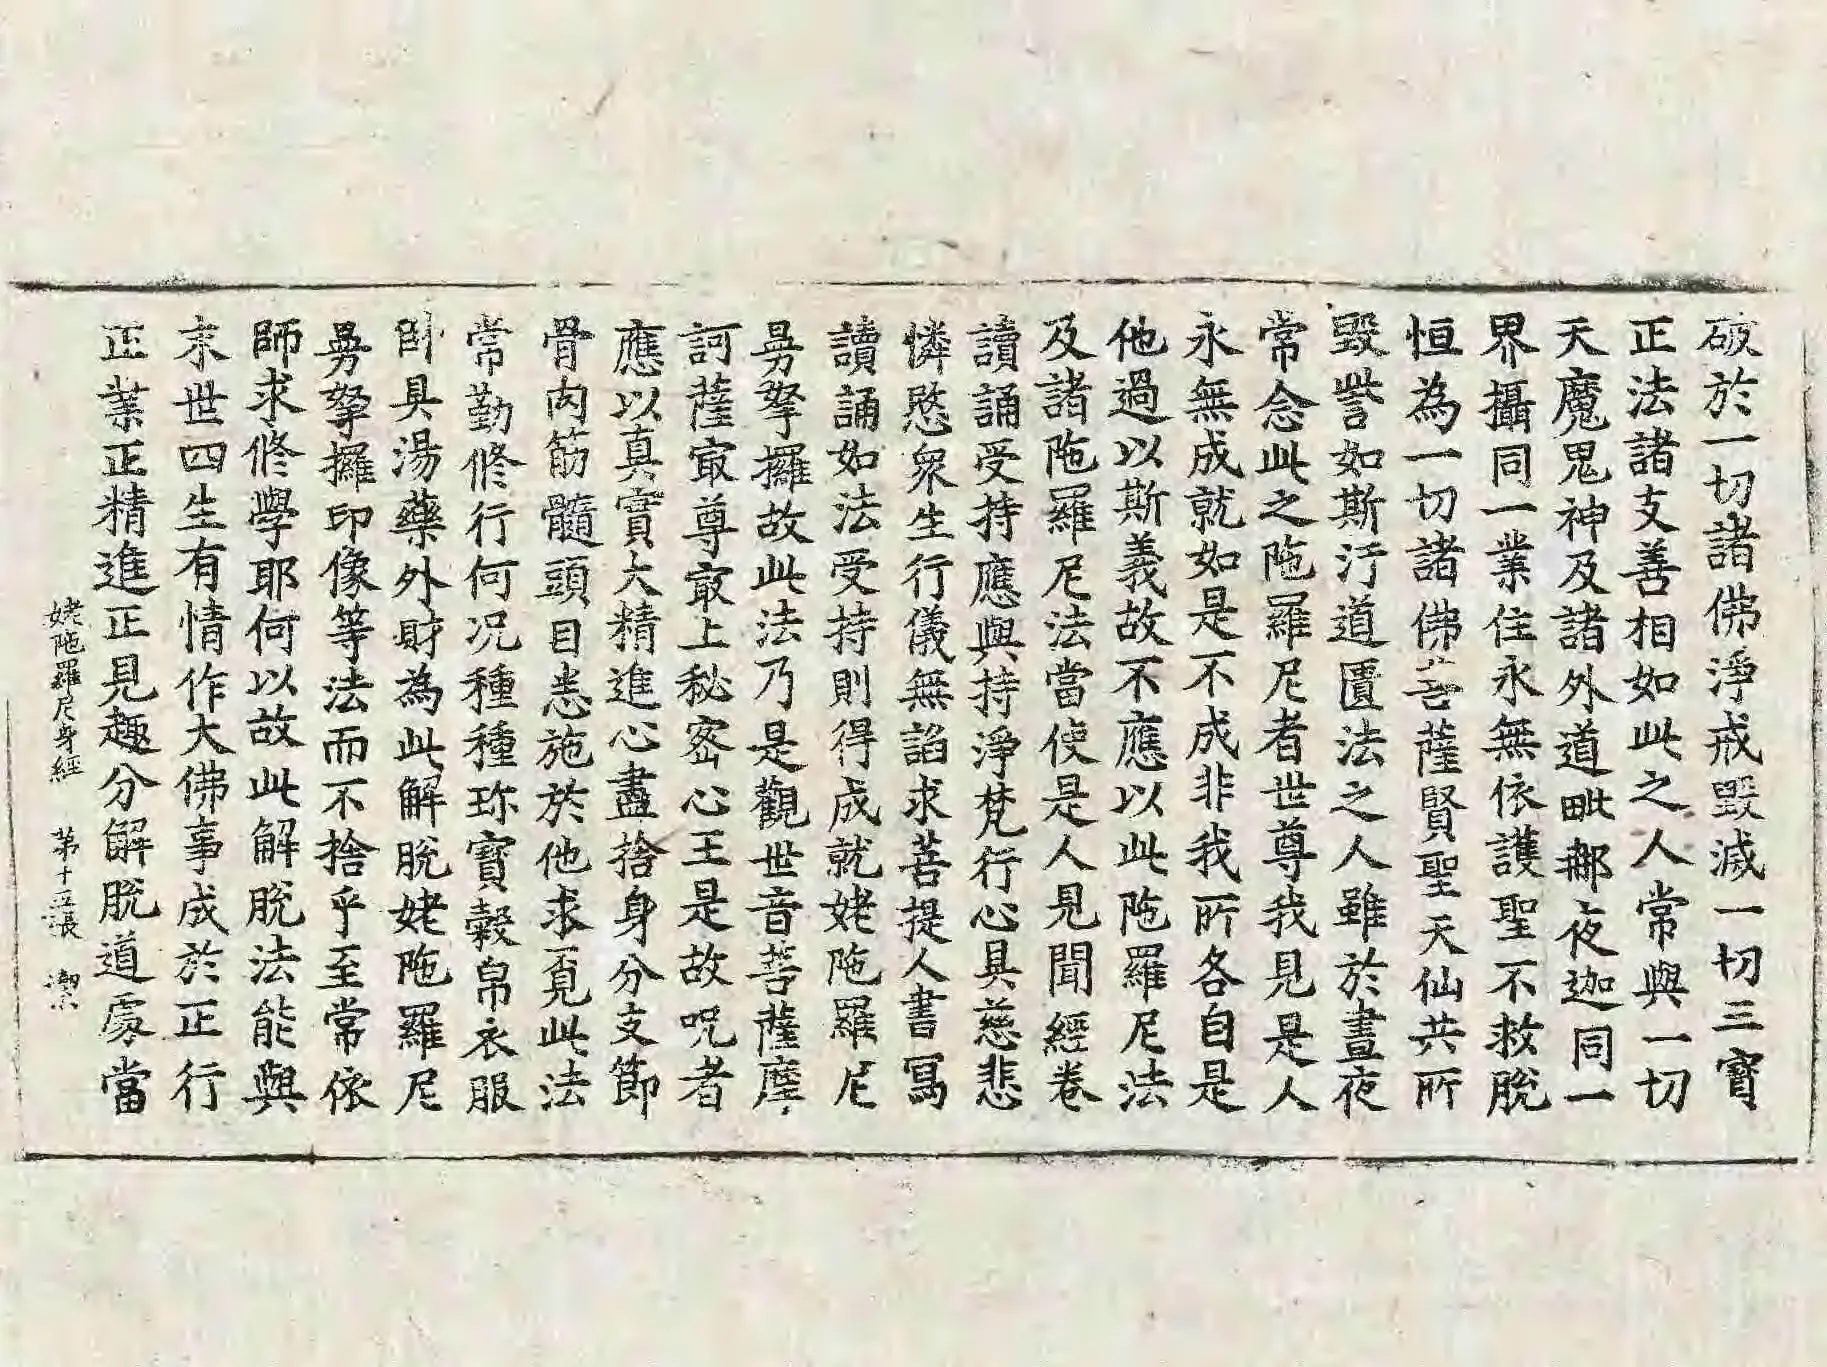 破於一切諸佛淨戒毀滅一切三寶
正法諸支善相如此之人常與一切
天魔鬼神及諸外道毗那夜迦同一
界攝同一業住永無依護聖不救脫
恒為一切諸佛菩薩賢聖天仙共所
毀訾如斯汙道匱法之人雖於晝夜
常念此之陁羅尼者世尊我見是人
永無成就如是不成非我所各自是
他過以斯義故不應以此陁羅尼法
及諸陁羅尼法當使是人見聞經卷
讀誦受持應與持淨梵行心具慈悲
憐愍衆生行儀無諂求菩提人書寫
讀誦如法受持則得成就姥陁羅尼
㬅拏攞故此法乃是觀世音菩薩摩
訶薩㝡尊㝡上秘密心王是故呪者
應以真實大精進心盡捨身分支節
骨肉筋髓頭目悉施於他求覓此法
常勤修行何况種種珎寶縠帛衣服
卧具湯藥外財為此解脫姥陁羅尼
㬅拏攞印像等法而不捨乎至常依
師求修學耶何以故此解脫法能與
末世四生有情作大佛事成於正行
正業正精進正見趣分解脫道處當
姥陁羅尼身經　第十五張　潔